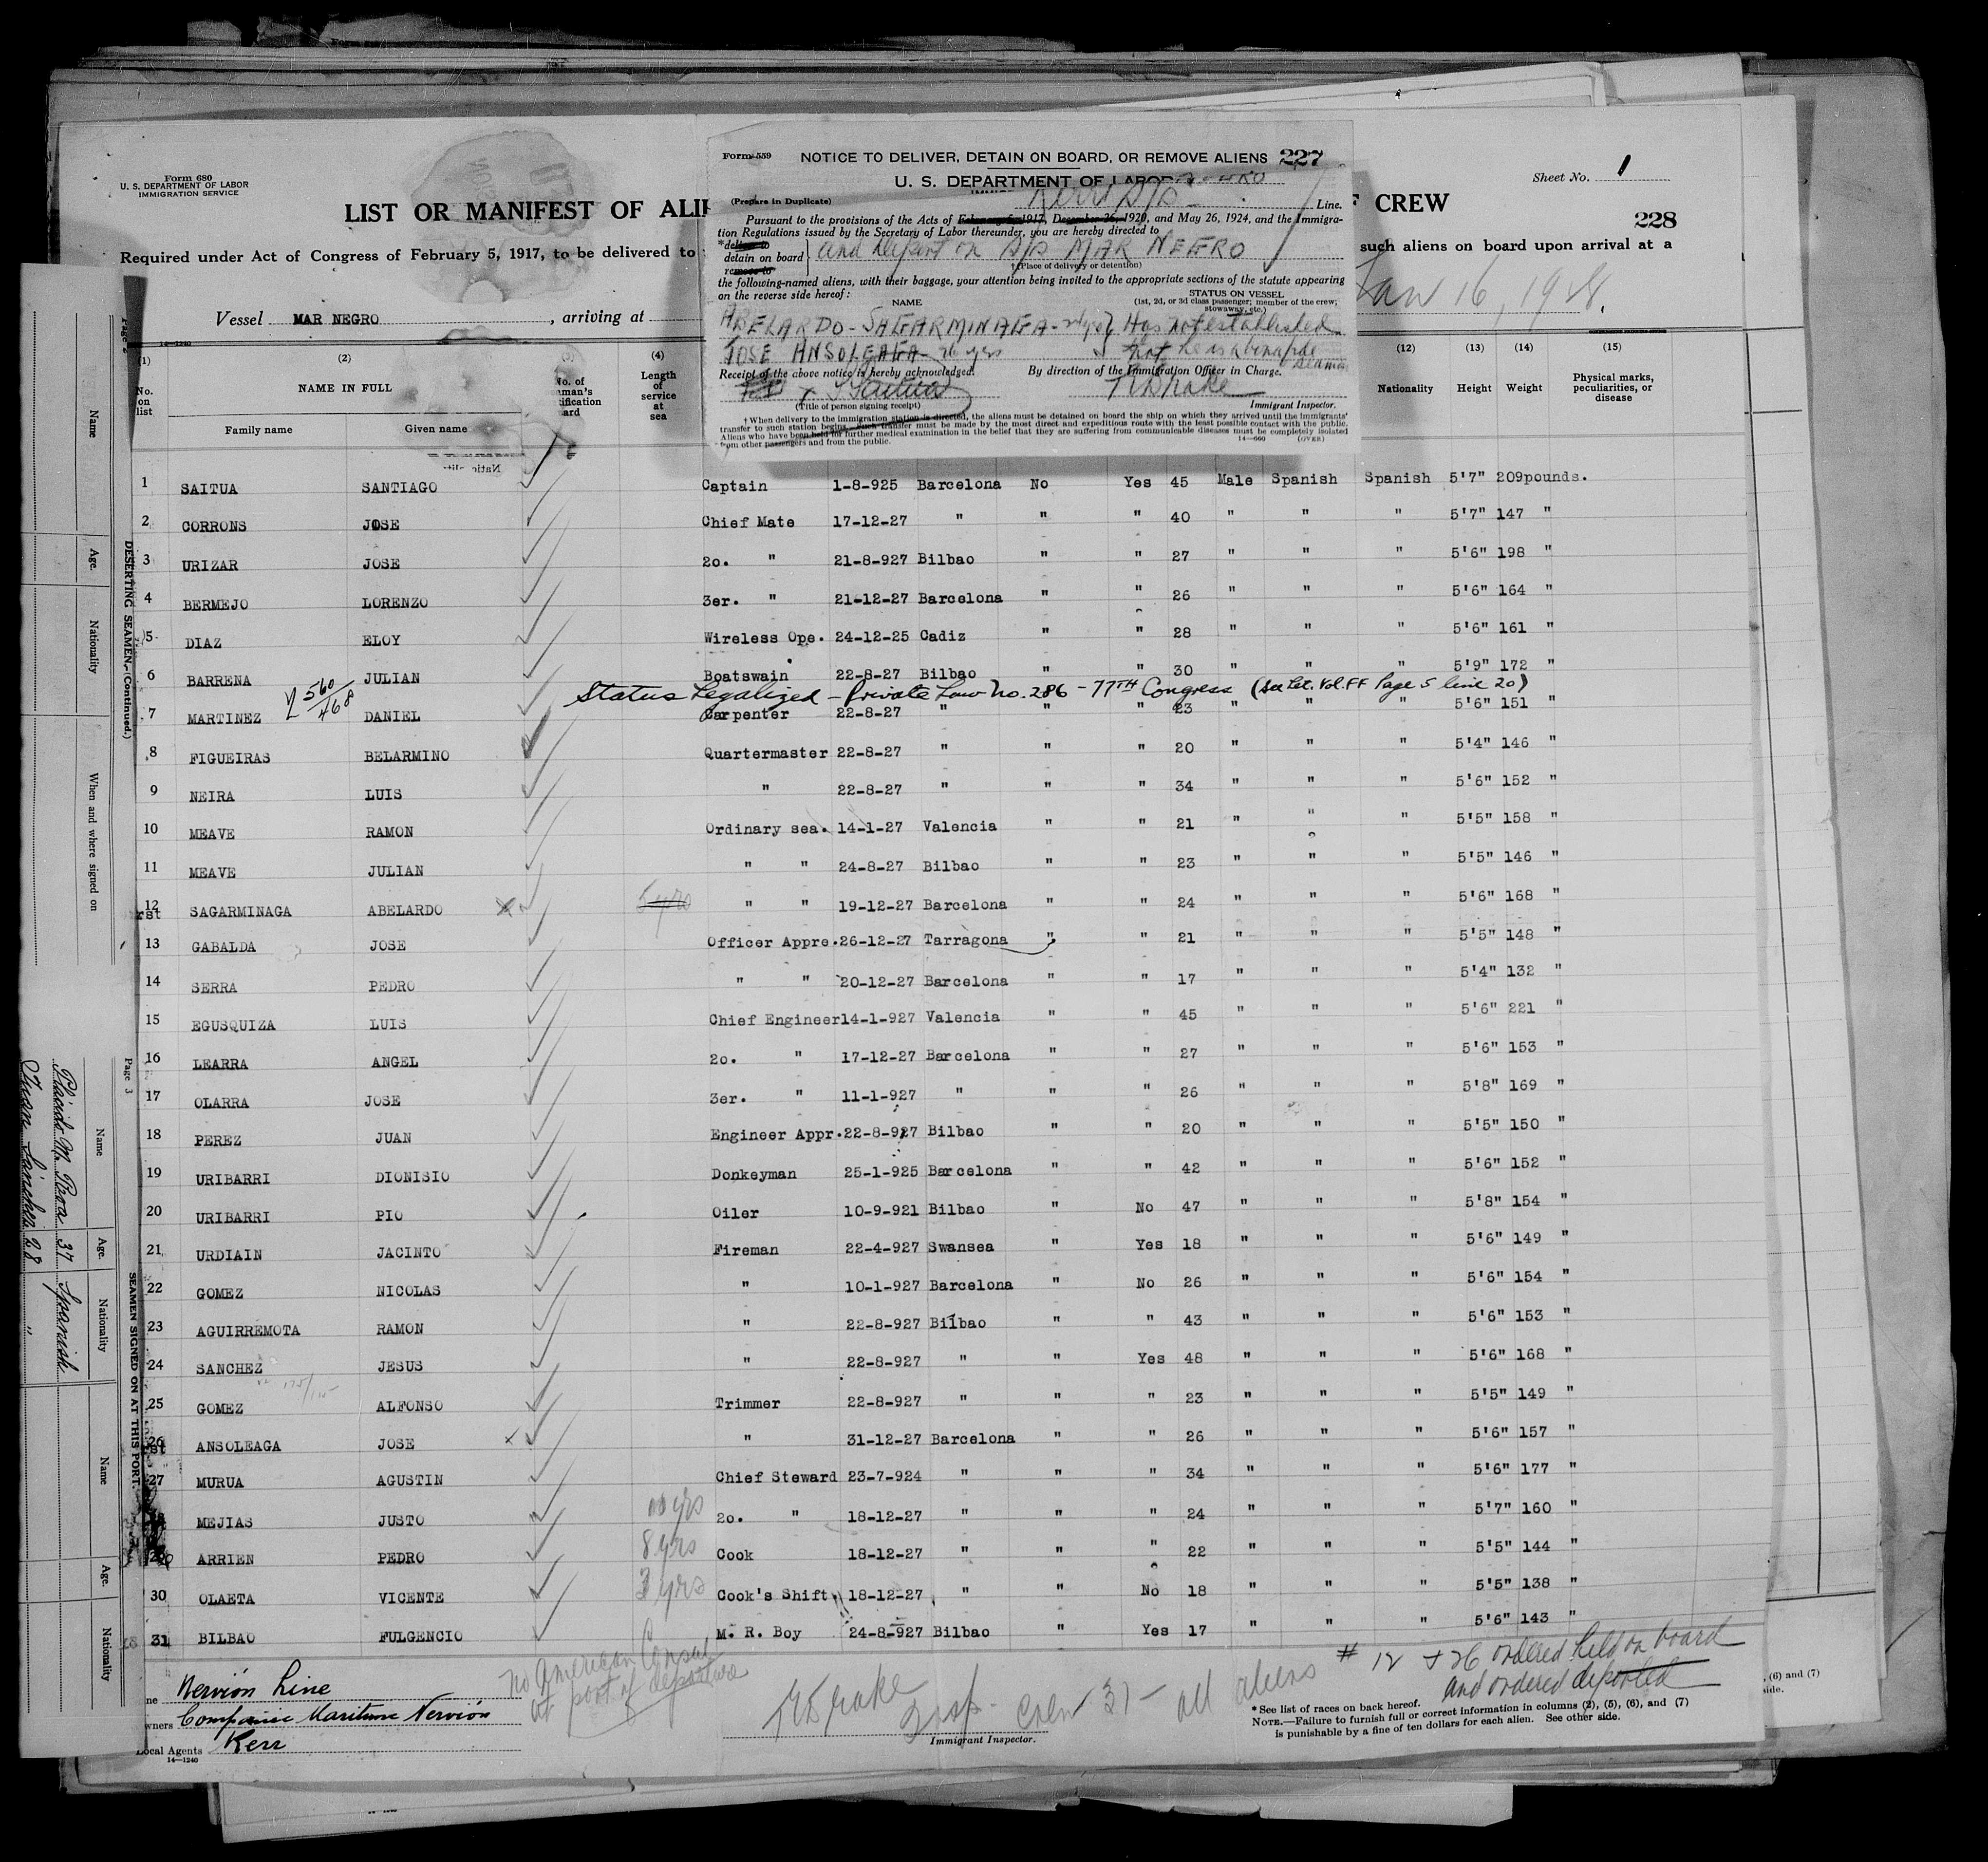 Form 680
U. S. DEPARTMENT OF LABOR
IMMIGRATION SERVICE
LIST OR MANIFEST OF ALI
F CREW
Sheet No. 1
228
Required under Act of Congress of February 5, 1917, to be delivered to
such aliens on board upon arrival at a
Vessel MAR NEGRO, arriving at
Jan 16, 1928.
Form 559
NOTICE TO DELIVER, DETAIN ON BOARD, OR REMOVE ALIENS 227
U. S. DEPARTMENT OF LABOR
(Prepare in Duplicate)
Kerr S/S Line.
Pursuant to the provisions of the Acts of February 5, 1917, December 26, 1920, and May 26, 1924, and the Immigra-
tion Regulations issued by the Secretary of Labor thereunder, you are hereby directed to
*deliver to
detain on board
remove to
and deport on S/S MAR NEGRO
† (Place of delivery or detention)
the following-named aliens, with their baggage, your attention being invited to the appropriate sections of the statute appearing
on the reverse side hereof:
NAME
STATUS ON VESSEL
(1st, 2d, or 3d class passenger; member of the crew;
stowaway, etc.)
ABELARDO - SAGARMINAGA - 24 yrs } Has not established
JOSE ANSOLEAGA - 26 yrs } that he is a bonafide
seaman
Receipt of the above notice is hereby acknowledged.
By direction of the Immigration Officer in Charge.
S Saitua
R Drake
(Title of person signing receipt)
Immigrant Inspector.
† When delivery to the immigration station is directed, the aliens must be detained on board the ship on which they arrived until the immigrants'
transfer to such station begins. Such transfer must be made by the most direct and expeditious route with the least possible contact with the public.
Aliens who have been held for further medical examination in the belief that they are suffering from communicable diseases must be completely isolated
from other passengers and from the public.
14—660 (OVER)
14—1240
(1) (2) (3) (4) (12) (13) (14) (15)
No. on list
NAME IN FULL
Family name Given name
No. of
Length of service at sea
Nationality Height Weight Physical marks, peculiarities, or disease
1 SAITUA SANTIAGO Captain 1-8-925 Barcelona No Yes 45 Male Spanish Spanish 5'7" 209pounds.
2 CORRONS JOSE Chief Mate 17-12-27 " " " 40 " " " 5'7" 147 "
3 URIZAR JOSE 2o. " 21-8-927 Bilbao " " 27 " " " 5'6" 198 "
4 BERMEJO LORENZO 3er. " 21-12-27 Barcelona " " 26 " " " 5'6" 164 "
5 DIAZ ELOY Wireless Ope. 24-12-25 Cadiz " " 28 " " " 5'6" 161 "
6 BARRENA JULIAN Boatswain 22-8-27 Bilbao " " 30 " " " 5'9" 172 "
560/468 Status Legalized - Private Law No. 286 - 77TH Congress (See Let. Vol. FF Page 5 line 20)
7 MARTINEZ DANIEL Carpenter 22-8-27 " " " 23 " " " 5'6" 151 "
8 FIGUEIRAS BELARMINO Quartermaster 22-8-27 " " " 20 " " " 5'4" 146 "
9 NEIRA LUIS " 22-8-27 " " " 34 " " " 5'6" 152 "
10 MEAVE RAMON Ordinary sea. 14-1-27 Valencia " " 21 " " " 5'5" 158 "
11 MEAVE JULIAN " " 24-8-27 Bilbao " " 23 " " " 5'5" 146 "
12 SAGARMINAGA ABELARDO X 5 yrs " " 19-12-27 Barcelona " " 24 " " " 5'6" 168 "
13 GABALDA JOSE Officer Appre. 26-12-27 Tarragona " " 21 " " " 5'5" 148 "
14 SERRA PEDRO " " 20-12-27 Barcelona " " 17 " " " 5'4" 132 "
15 EGUSQUIZA LUIS Chief Engineer 14-1-927 Valencia " " 45 " " " 5'6" 221 "
16 LEARRA ANGEL 2o. " 17-12-27 Barcelona " " 27 " " " 5'6" 153 "
17 OLARRA JOSE 3er. " 11-1-927 " " " 26 " " " 5'8" 169 "
18 PEREZ JUAN Engineer Appr. 22-8-927 Bilbao " " 20 " " " 5'5" 150 "
19 URIBARRI DIONISIO Donkeyman 25-1-925 Barcelona " " 42 " " " 5'6" 152 "
20 URIBARRI PIO Oiler 10-9-921 Bilbao " No 47 " " " 5'8" 154 "
21 URDIAIN JACINTO Fireman 22-4-927 Swansea " Yes 18 " " " 5'6" 149 "
22 GOMEZ NICOLAS " 10-1-927 Barcelona " No 26 " " " 5'6" 154 "
23 AGUIRREMOTA RAMON " 22-8-927 Bilbao " " 43 " " " 5'6" 153 "
24 SANCHEZ JESUS " 22-8-927 " " Yes 48 " " " 5'6" 168 "
25 GOMEZ ALFONSO Trimmer 22-8-927 " " " 23 " " " 5'5" 149 "
26 ANSOLEAGA JOSE x " 31-12-27 Barcelona " " 26 " " " 5'6" 157 "
27 MURUA AGUSTIN Chief Steward 23-7-924 " " " 34 " " " 5'6" 177 "
MEJIAS JUSTO yrs 2o. " 18-12-27 " " " 24 " " " 5'7" 160 "
ARRIEN PEDRO 8 yrs Cook 18-12-27 " " " 22 " " " 5'5" 144 "
30 OLAETA VICENTE 3 yrs Cook's Shift 18-12-27 " " No 18 " " " 5'5" 138 "
31 BILBAO FULGENCIO M. R. Boy 24-8-927 Bilbao " Yes 17 " " " 5'6" 143 "
Nervión Line
Owners Compañia Maritime Nervión
Local Agents Kerr
14—1240
no American Consul
at port of departure
R Drake
Insp.
31 - all aliens
Immigrant Inspector.
# 12 + 26 ordered held on board
and ordered deported
* See list of races on back hereof.
NOTE.—Failure to furnish full or correct information in columns (2), (5), (6), and (7)
is punishable by a fine of ten dollars for each alien. See other side.
, (6) and (7)
side.
DESERTING SEAMEN.—(Continued.)
Name Age. Nationality When and where signed on
Page 3
SEAMEN SIGNED ON AT THIS PORT.
Name Age. Nationality
Placido M. Roca 37 Spanish
Juan Sánchez 28 "
Name Age. Nationality